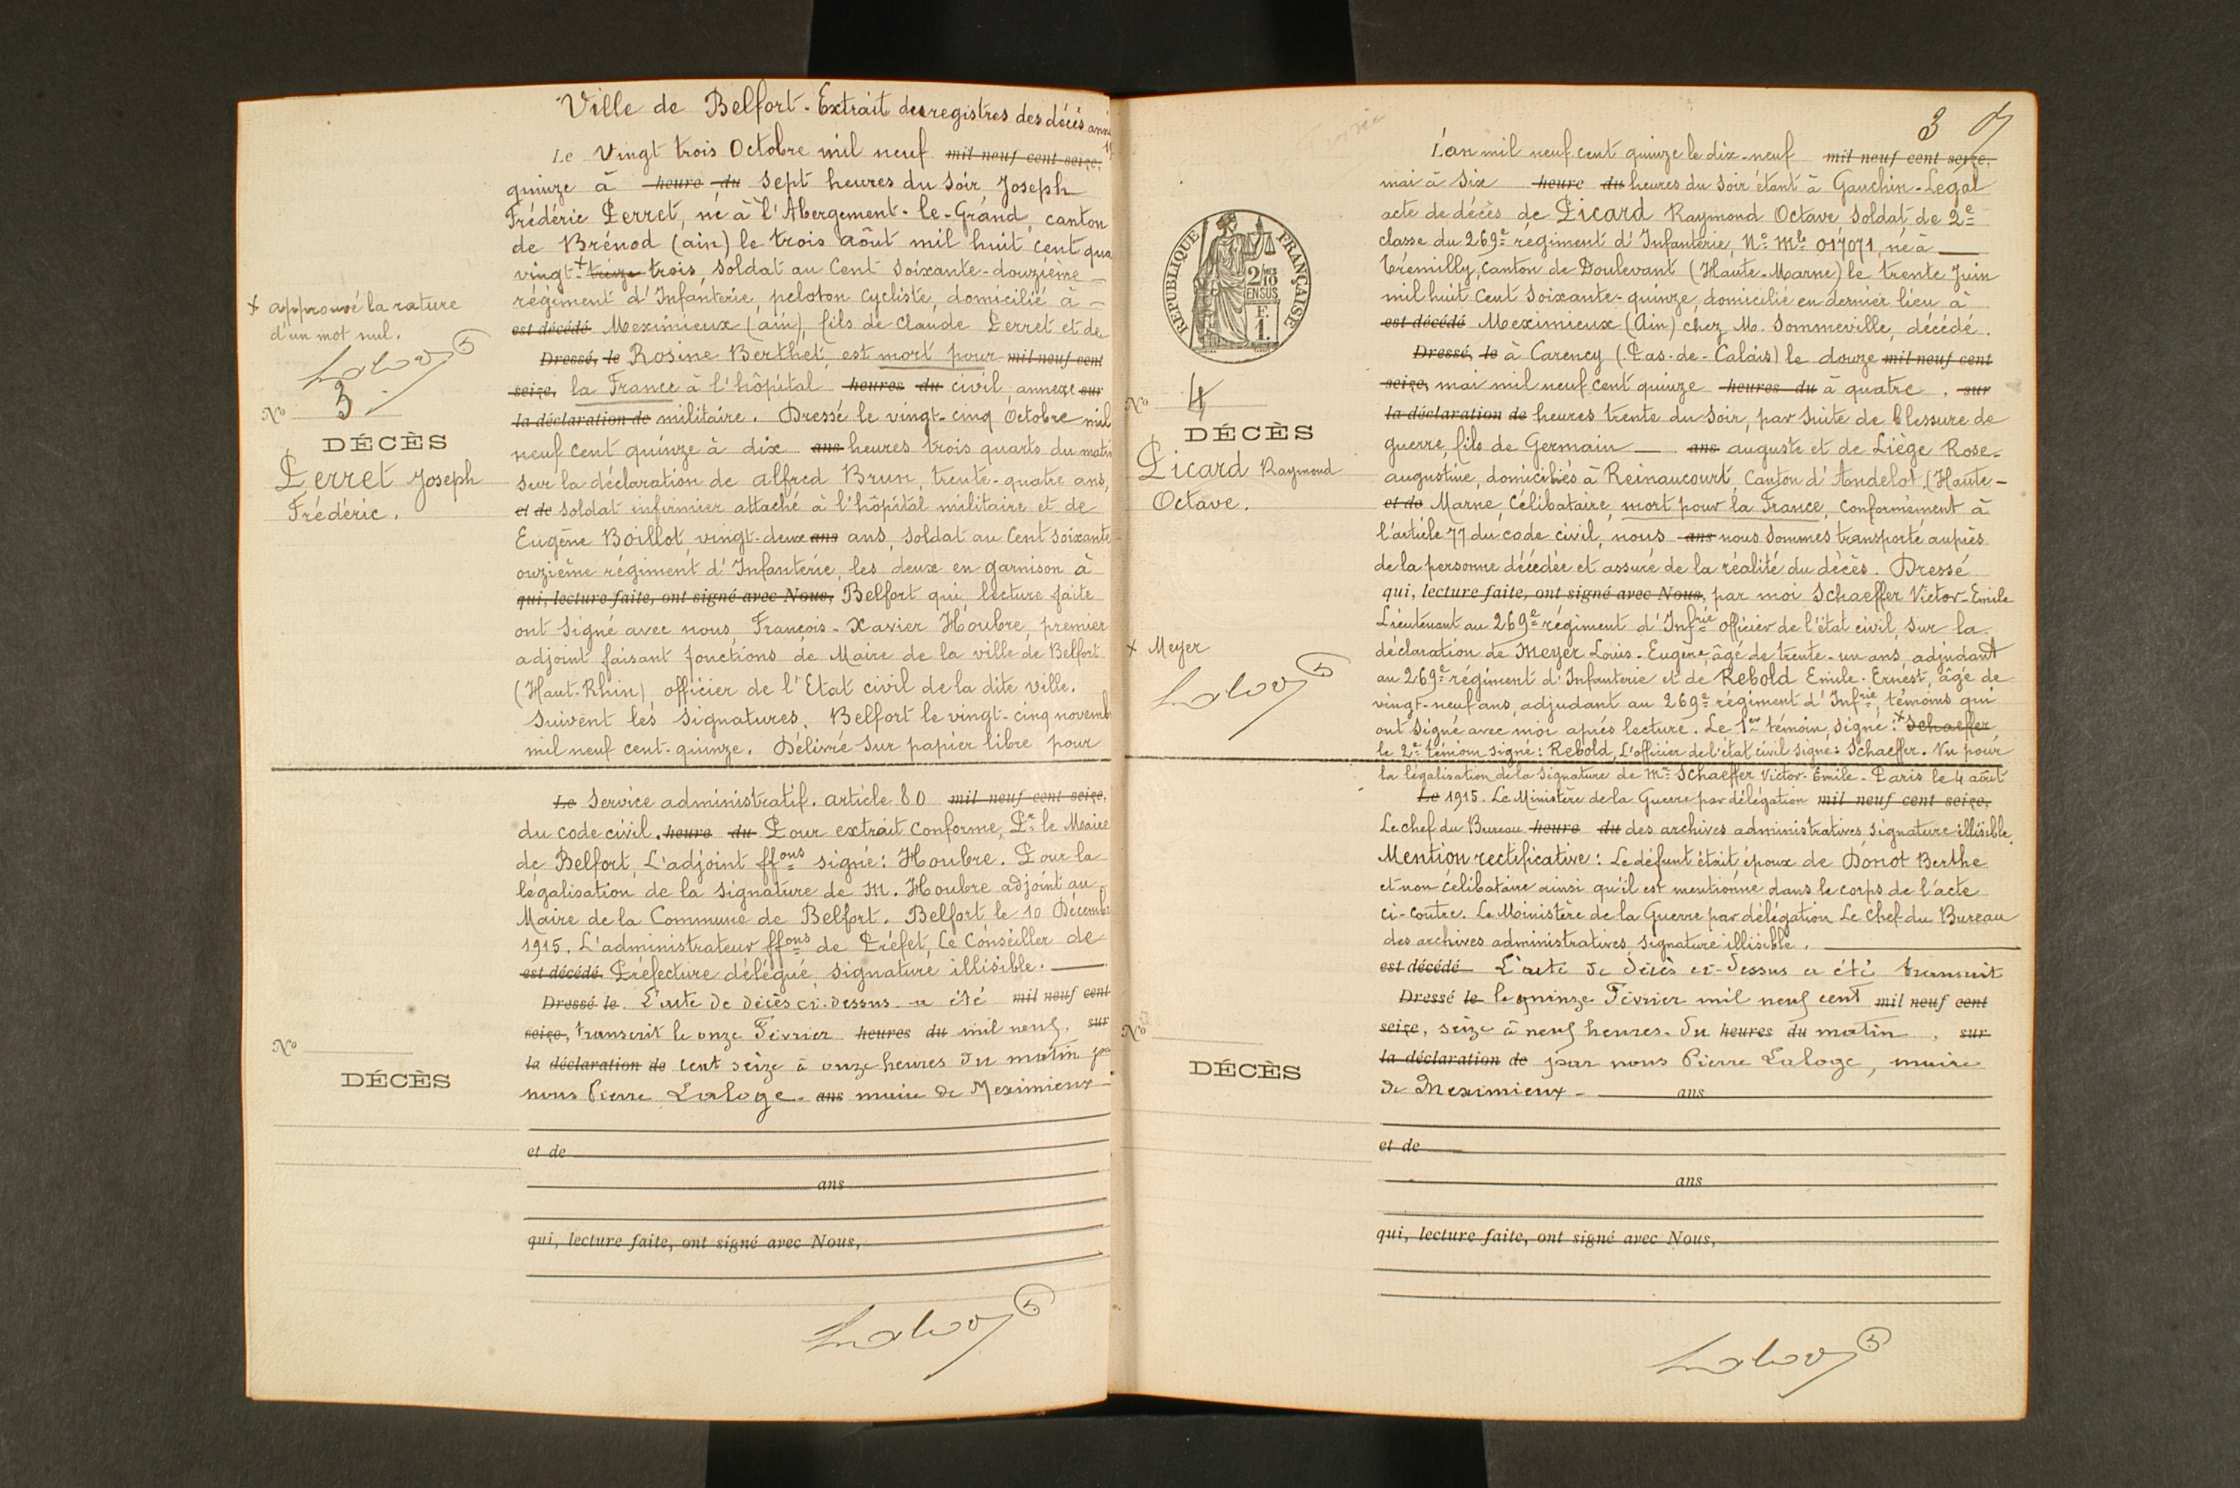 Ville de Belfort. Extrait des registres des décès
Le Vingt trois Octobre mil neuf mil neuf cent seize.
quinze à heure du Sept heures du Soir Joseph
Frédéric Perret, né à l'Abergement-le-Grand, canton
de Brénod (ain) le trois août mil huit cent qua
vingt-x treize trois, soldat au Cent soixante-douzième
régiment d'Infanterie, peloton cycliste, domicilié à
est décédé Meximieux (ain), fils de Claude Perret et de
Dressé, le Rosine Berthet, est mort pour mil neuf cent
seize, la France à l'hôpital heures du civil, annexe sur
la déclaration de militaire. Dressé le vingt-cinq Octobre mil
neuf cent quinze à dix ans heures trois quarts du matin
sur la déclaration de alfred Brun, trente-quatre ans,
et de soldat infirmier attaché à l'hôpital militaire et de
Eugène Boillot vingt-deux ans ans, soldat au Cent soixante
onzième régiment d'Infanterie, les deux en garnison à
qui, lecture faite, ont signé avec Nous, Belfort qui, lecture faite
ont signé avec nous, François-Xavier Houbre, premier
adjoint faisant fonctions de Maire de la ville de Belfort
(Haut-Rhin) officier de l'Etat civil de la dite ville.
Suivent les signatures. Belfort le vingt-cinq novemb
mil neuf cent-quinze. Délivré sur papier libre, pour
Le Service administratif. article 80 mil neuf cent seize.
du code civil. heure du Pour extrait conforme, Pr le Maire
de Belfort, L'adjoint ffons signé: Houbre. Pour la
légalisation de la signature de M. Houbre adjoint au
Maire de la Commune de Belfort. Belfort le 10 Décembr
1915. L'administrateur ffons de Préfet, le Conseiller de
est décédé Préfecture délégué, signature illisible.
Dressé le. L'acte de décès ci-dessus a été mil neuf cent
seize, transcrit le onze Février heures du mil neuf. sur
la déclaration de cent seize à onze heures du matin par
nous Pierre Laloge. ans maire de Meximieux
et de
ans
qui, lecture faite, ont signé avec Nous,
x approuvé la rature
d'un mot nul.
No 3
DÉCÈS
Perret Joseph
Frédéric.
No
DÉCÈS
3
L'an mil neuf cent quinze le dix-neuf mil neuf cent seize.
mai à six heure du heures du soir étant à Gauchin-Legal
acte de décès de Picard Raymond Octave, soldat de 2e
classe du 269e régiment d'Infanterie, No Mle 017071, né à
Trémilly, canton de Doulevant (Haute-Marne) le trente Juin
mil huit cent soixante-quinze, domicilié en dernier lieu à
est décédé Meximieux (Ain) chez M. Sommeville, décédé.
Dressé, le à Carency (Pas-de-Calais) le douze mil neuf cent
seize, mai mil neuf cent quinze heures du à quatre. sur
la déclaration de heures trente du soir, par suite de blessure de
guerre, fils de Germain ans auguste et de Liège Rose-
augustine, domiciliés à Reinaucourt, Canton d'Andelot (Haute-
et de Marne, célibataire, mort pour la France, conformément à
l'article 77 du code civil, nous ans nous sommes transporté auprès
de la personne décédée et assuré de la réalité du décès. Dressé
qui, lecture faite, ont signé avec Nous, par moi Schaeffer Victor-Emile
Lieutenant au 269e régiment d'Infrie officier de l'état civil, sur la
déclaration de Meyer Louis-Eugène, âgé de trente-un ans, adjudant
au 269e régiment d'Infanterie et de Rebold Emile-Ernest, âgé de
vingt-neuf ans, adjudant au 269e régiment d'Infrie, témoins qui
ont signé avec moi après lecture. Le 1er témoin, signé: x Schaeffer
le 2e témoin signé: Rebold, L'officier de l'état civil signé: Schaeffer. Vu pour
la légalisation de la signature de Mr Schaeffer Victor-Emile. Paris le 4 août
Le 1915. Le Ministère de la Guerre par délégation mil neuf cent seize.
Le chef du Bureau heure du des archives administratives signature illisible.
Mention rectificative: Le défunt était époux de Donot Berthe
et non célibataire ainsi qu'il est mentionné dans le corps de l'acte
ci-contre. Le Ministère de la Guerre par délégation Le chef du Bureau
des archives administratives signature illisible.
est décédé L'acte de décès ci-dessus a été transcrit
Dressé le le quinze Février mil neuf cent mil neuf cent
seize, seize à neuf heures. du heures du matin. sur
la déclaration de par nous Pierre Laloge, maire
de Meximieux - ans
et de
ans
qui, lecture faite, ont signé avec Nous,
RÉPUBLIQUE FRANÇAISE
2/10
EN SUS
F.
1.
No 4
DÉCÈS
Picard Raymond
Octave.
x Meyer
No
DÉCÈS